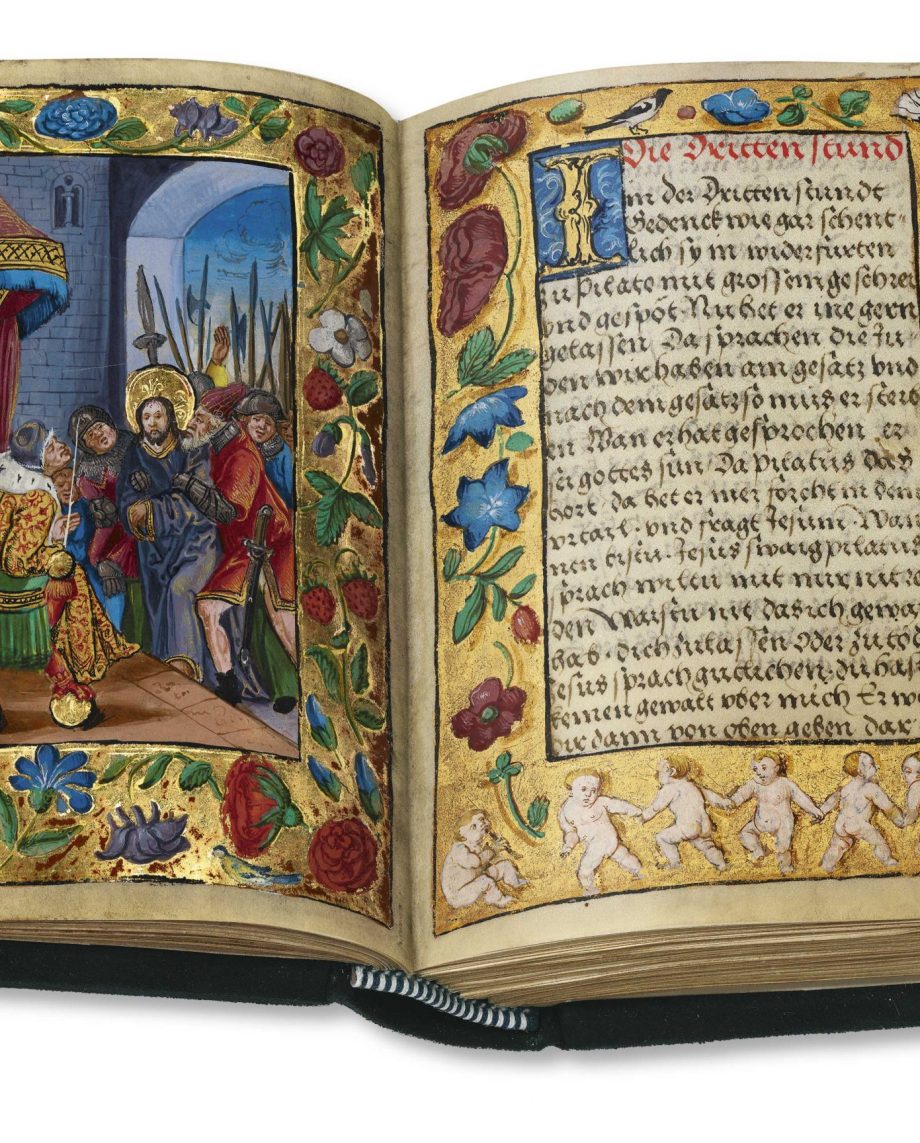 Die Dritten stund
In der Dritten stundt
Gedenck wie gar schent-
lich sy in widerfurten
zu Pilato mit grossem geschrei
vnd gespöt. Nu het er ine gern
gelassen Da sprachen die Ju
den wir haben am gesätz vnd
nach dem gesätz so mus er sterb
en Wan er hat gesprochen er
sei gottes sun. Da pilatus das
hort. da het er mer forcht in dem
vrtail. vnd fragt Jesum. Wan
nen bistu. Jesus swaig pilatus
sprach wiltu mit mir nit re
den Waistu nit das ich gewa
hab. dich zulassen Oder zu tö
Jesus sprach gutlichen. du has
keinen gewalt vber mich Er w
dir dann von oben geben dar